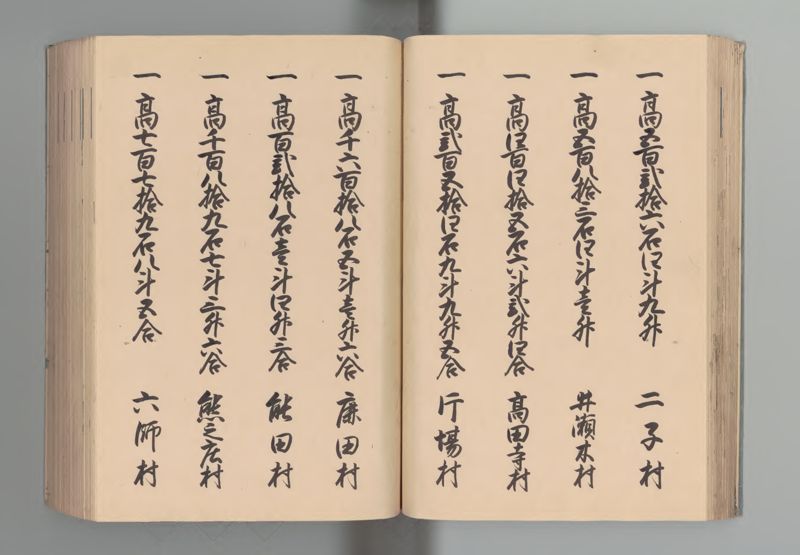 一 高五百弐拾六石四斗九升 二子村
一 高五百八拾三石四斗壱升 井瀬木村
一 高四百四拾五石六斗弐升四合 高田寺村
一 高弐百五拾四石九斗九升五合 片場村
一 高千六百拾八石五斗壱升六合 鹿田村
一 高百弐拾八石壱斗四升三合 能田村
一 高千百八拾九石七斗三升六合 熊之庄村
一 高七百七拾九石八斗五合 六師村